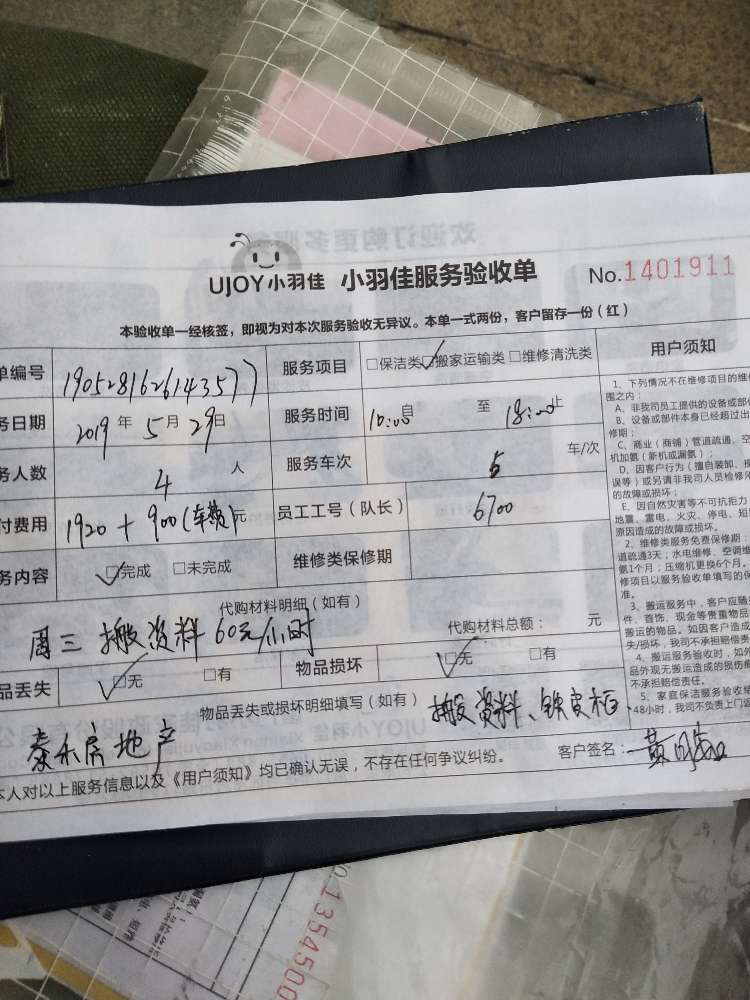 UJOY小羽佳 小羽佳服务验收单 No.1401911
本验收单一经核签，即视为对本次服务验收无异议。本单一式两份，客户留存一份（红）
单编号 1905281626143577 服务项目 □保洁类 ☑搬家运输类 □维修清洗类
务日期 2019年5月29日 服务时间 10:00自 至 18:00止
务人数 4人 服务车次 5 车/次
付费用 1920+900(车费)元 员工工号（队长） 6700
务内容 ☑完成 □未完成 维修类保修期
代购材料明细（如有）
周三 搬资料 60元/小时 代购材料总额： 元
品丢失 ☑无 □有 物品损坏 ☑无 □有
物品丢失或损坏明细填写（如有） 搬资料、铁皮柜
泰禾房地产
本人对以上服务信息以及《用户须知》均已确认无误，不存在任何争议纠纷。 客户签名：黄
用户须知
1、下列情况不在维修项目的维
围之内：
A、非我司员工提供的设备或部
B、设备或部件本身已经超过出
修期；
C、商业（商铺）管道疏通、空
机加氨（新机或漏氨）；
D、因客户行为（擅自装卸、
误等）或另请非我司人员检修
的故障或损坏；
E、因自然灾害等不可抗拒力
地震、雷电、火灾、停电、短
原因造成的故障或损坏。
2、维修类服务免费保修期：
道疏通3天；水电维修、空调
氨1个月；压缩机更换6个月。
修项目以服务验收单填写的保
准。
3、搬运服务中，客户应随
件、首饰、现金等贵重物品
搬运的物品。如因客户造成
失/损坏，我司不承担赔偿责
4、搬运服务验收时，如外
品外观无搬运造成的损伤
不承担赔偿责任。
5、家庭保洁服务验收
48小时，我司不负责上门
欢迎订购更多服
1354500